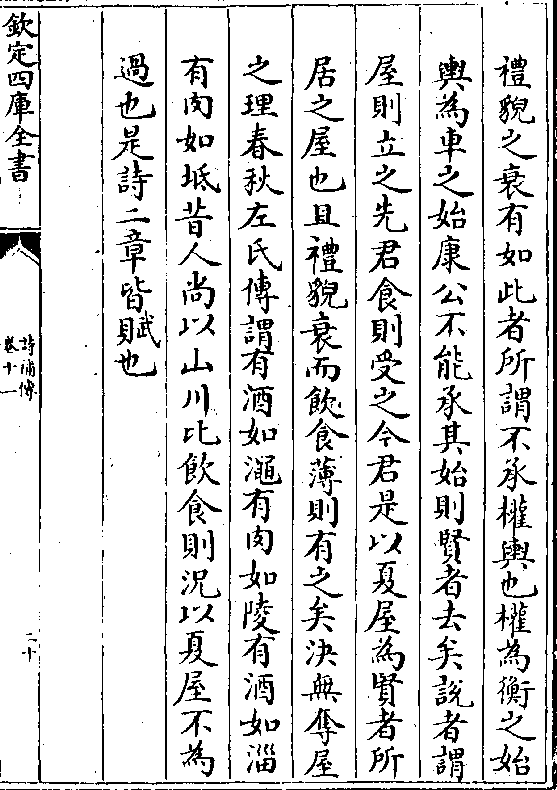 禮貌之衰有如此者所謂不承權輿也權為衡之始
輿為車之始康公不能承其始則賢者去矣說者謂
屋則立之先君食則受之今君是以夏屋為賢者所
居之屋也且禮貌衰而飲食薄則有之矣決無奪屋
之理春秋左氏傳謂有酒如澠有肉如陵有酒如淄
有肉如坻昔人尚以山川比飲食則況以夏屋不為
過也是詩二章皆賦也
欽定四庫全書
詩演傳
卷十一
二十